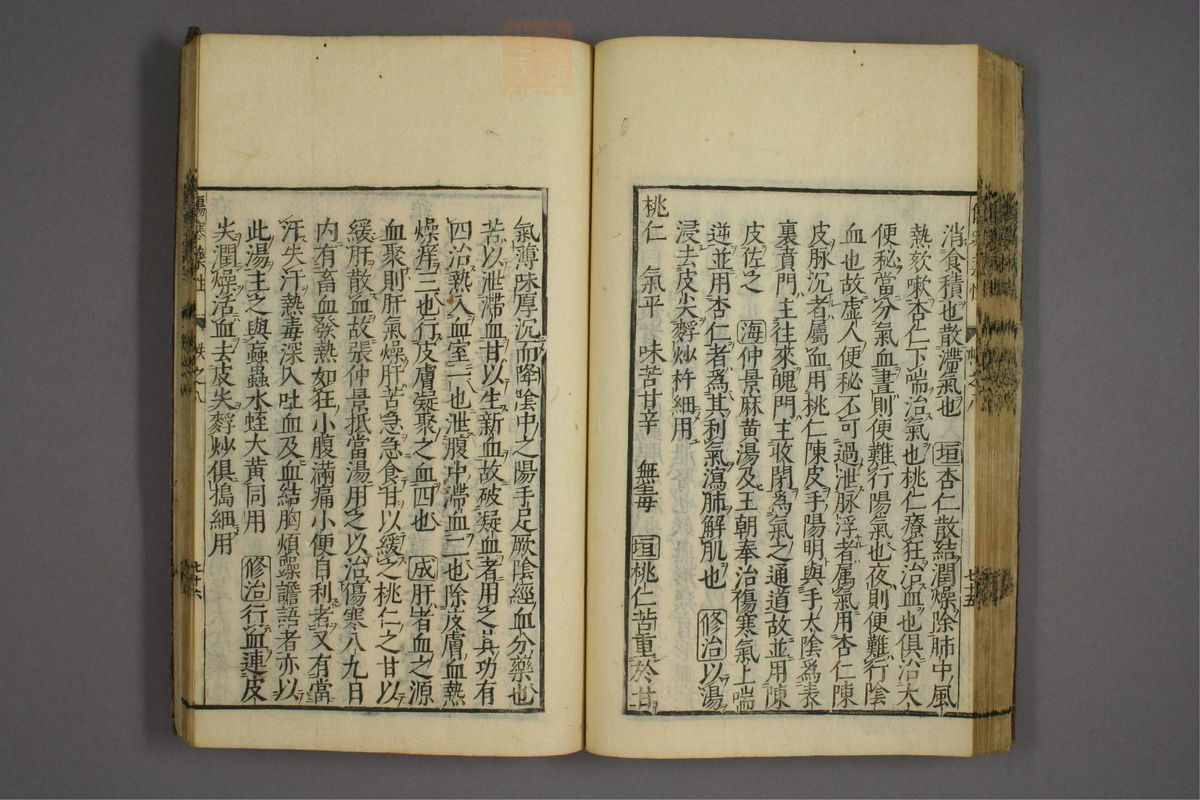 消食積也散滯氣也 垣杏仁散結潤燥除肺中風
熱欬嗽杏仁下喘治氣也桃仁療狂治血也俱治大
便秘當分氣血晝則便難行陽氣也夜則便難行陰
血也故虛人便秘不可過泄脉浮者屬氣用杏仁陳
皮脉沉者屬血用桃仁陳皮手陽明與手太陰爲表
裏賁門主往來魄門主收閉爲氣之通道故並用陳
皮佐之 海仲景麻黄湯及王朝奉治傷寒氣上喘
逆並用杏仁者爲其利氣瀉肺解肌也 修治以湯
浸去皮尖麩炒杵細用
桃仁 氣平 味苦甘辛 無毒 垣桃仁苦重於甘
七十五
氣薄味厚沉而降陰中之陽手足厥陰經血分藥也
苦以泄滯血甘以生新血故破凝血者用之其功有
四治熱入血室一也泄腹中滯血二也除皮膚血熱
燥痒三也行皮膚凝聚之血四也 成肝者血之源
血聚則肝氣燥肝苦急急食甘以緩之桃仁之甘以
緩肝散血故張仲景抵當湯用之以治傷寒八九日
内有畜血發熱如狂小腹滿痛小便自利者又有當
汗失汗熱毒深入吐血及血結胸煩躁譫語者亦以
此湯主之與蝱蟲水蛭大黄同用 修治行血連皮
尖潤燥活血去皮尖麩炒俱搗細用
傷寒藥性 之八 七十六